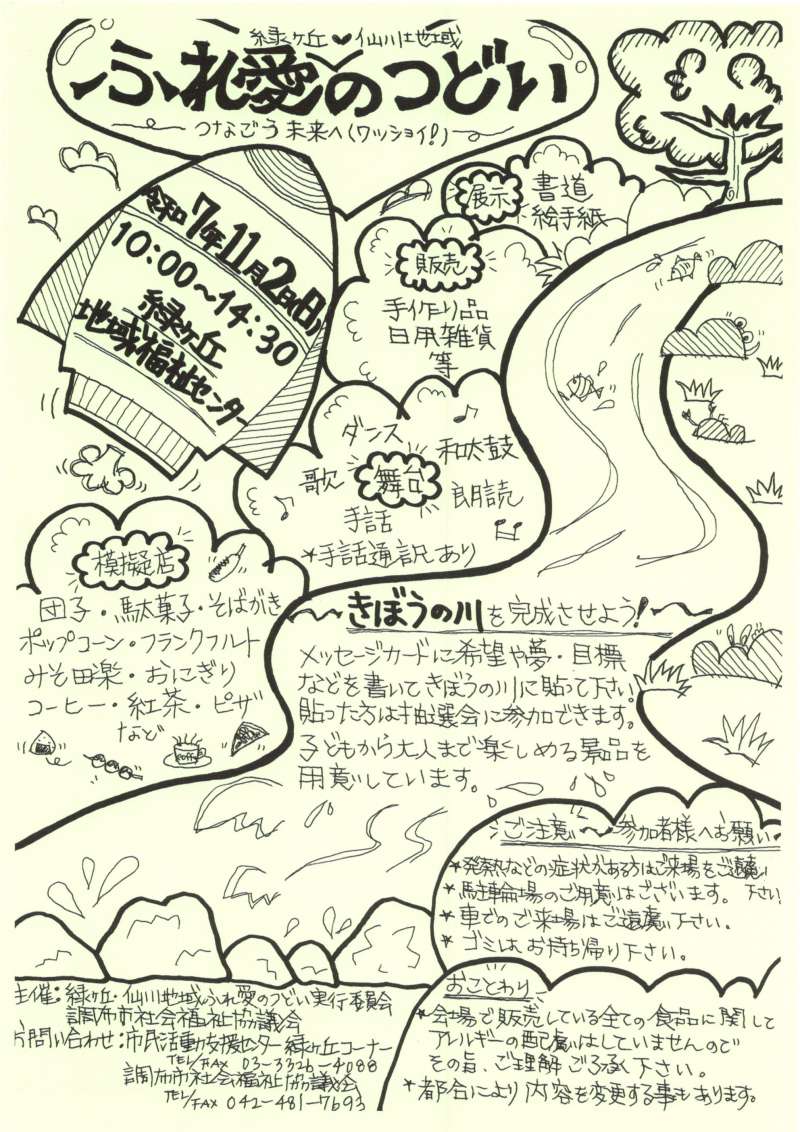 緑ヶ丘♥仙川地域
ふれ愛のつどい
つなごう未来へ(ワッショイ!)
令和7年11月2日(日)
10:00~14:30
緑ヶ丘
地域福祉センター
展示
書道
絵手紙
販売
手作り品
日用雑貨
等
舞台
ダンス
和太鼓
歌
朗読
手話
*手話通訳あり
模擬店
団子・駄菓子・そばがき
ポップコーン・フランクフルト
みそ田楽・おにぎり
コーヒー・紅茶・ピザ
など
coffee
きぼうの川を完成させよう!
メッセージカードに希望や夢・目標
などを書いてきぼうの川に貼って下さい
貼った方は抽選会に参加できます。
子どもから大人まで楽しめる景品を
用意しています。
ご注意~参加者様へお願い
*発熱などの症状がある方はご来場をご遠慮
下さい
*駐輪場のご用意はございます。
*車でのご来場はご遠慮下さい.
*ゴミはお持ち帰り下さい。
おことわり
*会場で販売している全ての食品に関して
アレルギーの配慮はしていませんので
その旨、ご理解ご了承下さい。
*都合により内容を変更する事もあります。
主催:緑ヶ丘・仙川地域ふれ愛のつどい実行委員会
調布市社会福祉協議会
問い合わせ:市民活動支援センター緑ヶ丘コーナー
TEL/FAX 03-3326-4088
調布市社会福祉協議会
TEL/FAX 042-481-7693